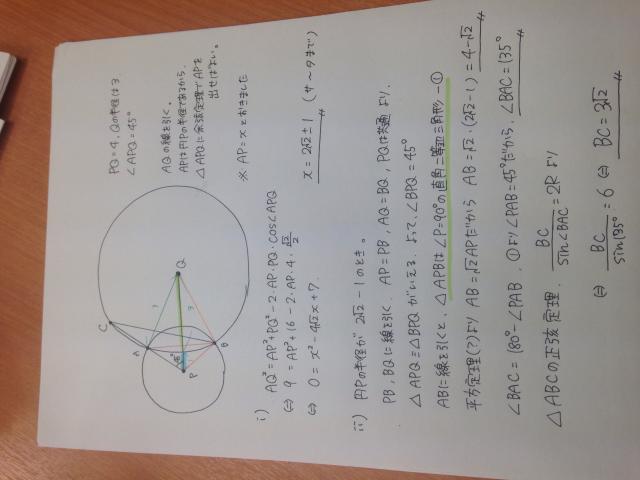 PQ=4, Qの半径は3
∠APQ=45°
AQの線を引く。
APは円Pの半径であるから、
△APQに余弦定理でAPを
出せばよい。
※ AP=xとおきました
C
A
Q
P
B
3
3
45°
i)
AQ²=AP²+PQ²-2・AP・PQ・cos∠APQ
⇔ 9=AP²+16-2・AP・4・√2/2
⇔ 0=x²-4√2x+7.
x=2√2±1 (サ〜タまで)
ii) 円Pの半径が 2√2-1のとき。
PB, BQに線を引く. AP=PB, AQ=BQ, PQは共通 より、
△APQ≡△BPQ がいえる. よって、∠BPQ=45°
ABに線を引くと、△APBは∠P=90°の直角二等辺三角形-①
平方定理(?)より AB=√2APだから AB=√2・(2√2-1)=4-√2
∠BAC=180°-∠PAB. ①より∠PAB=45°だから、∠BAC=135°
△ABCの正弦定理. BC/sin∠BAC=2R より
⇔ BC/sin135°=6 ⇔ BC=3√2